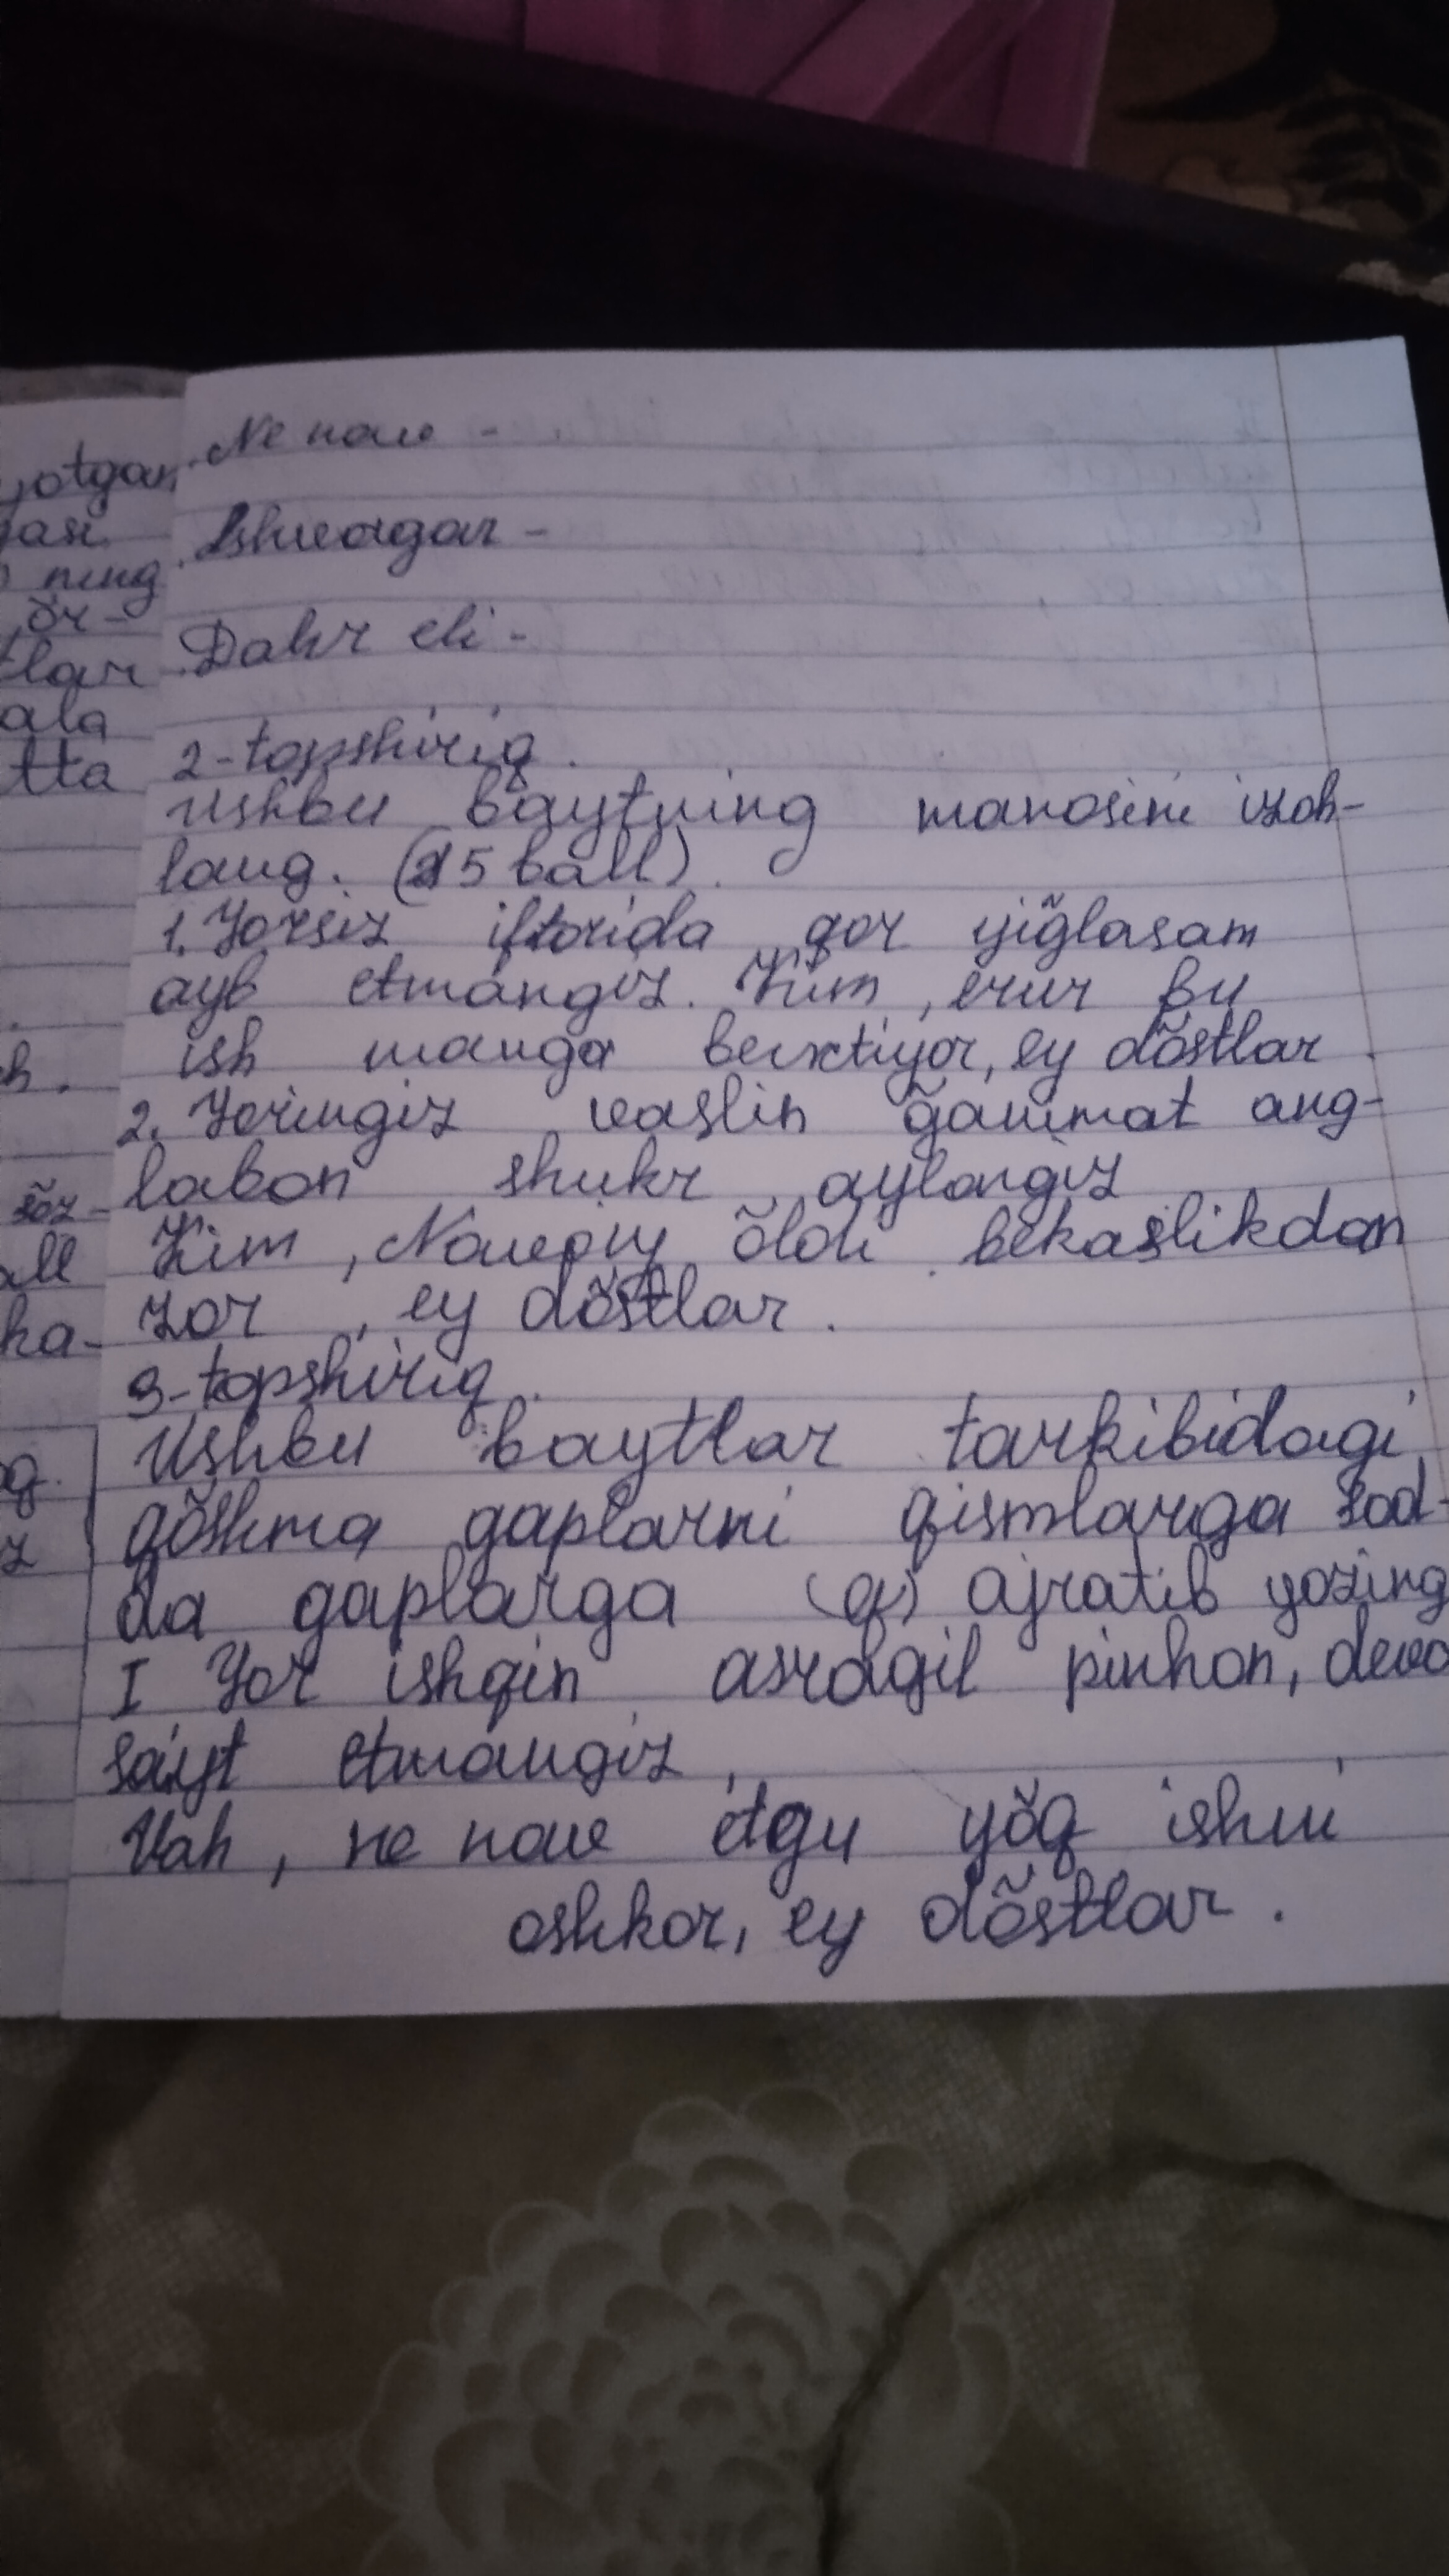 yotgan
gasi
ning
ör-
tlar
ala
tta
h.
söz-
all
ha-
g.
z
Ne nav -
Ishvagar -
Dahr eli -
2-topshiriq.
Ushbu baytning manosini izoh-
lang. (25 ball).
1. Yorsiz iftorida gor yiğlasam
ayb etmángiz. Kim, erur bu
ish manga beixtiyor, ey döstlar.
2. Yoringiz vaslin ğanimat ang-
labon shukr aylangiz
Kim, Navoiy öldi bekaslikdan
zor, ey döstlar.
3-topshiriq.
Ushbu baytlar tarkibidagi
qöshma gaplarni qismlarga sod-
da gaplarga (q) ajratib yozing
I Yor ishqin asrağil pinhon, deva
sáyt etmángiz,
Vah, ne nav etgu yöq ishni
oshkor, ey döstlar.